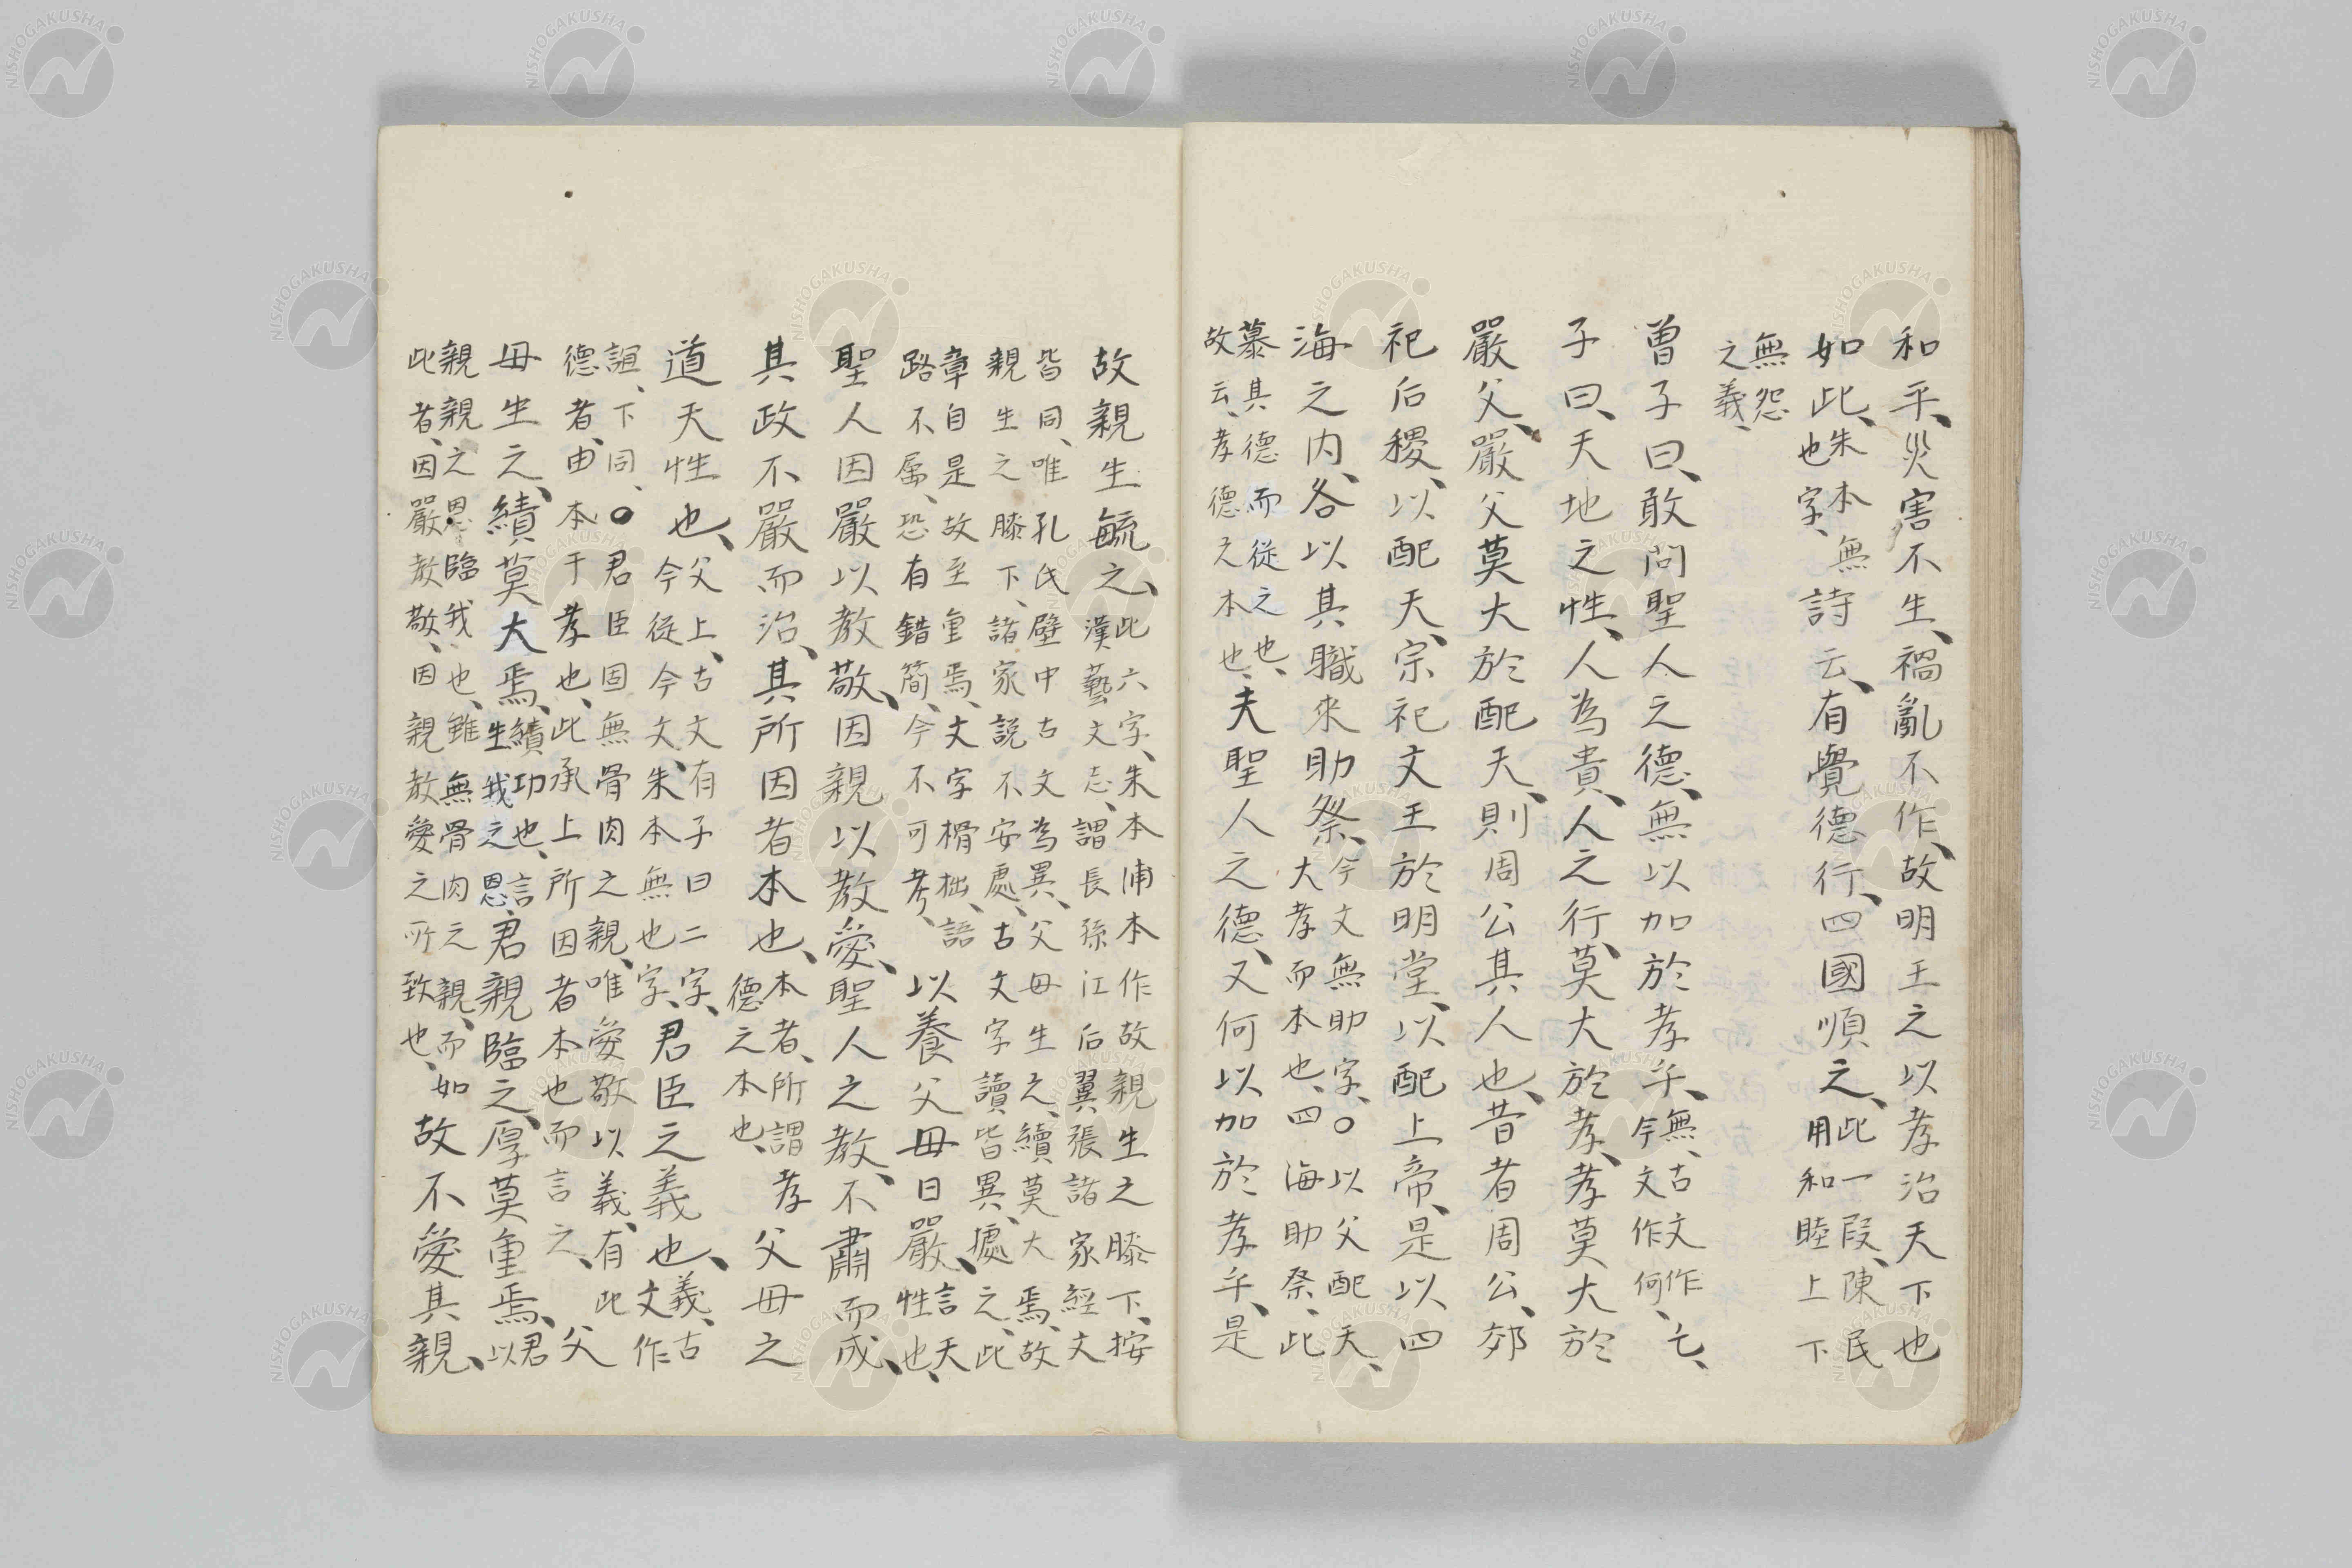 和平、災害不生、禍亂不作、故明王之以孝治天下也
如此、朱本無也字、詩云、有覺德行、四國順之、此一段、陳民用和睦上下
無怨之義、
曽子曰、敢問聖人之德、無以加於孝乎、無、古文作亡、今文作何、
子曰、天地之性、人為貴、人之行、莫大於孝、孝莫大於
嚴父、嚴父莫大於配天、則周公其人也、昔者周公、郊
祀后稷、以配天、宗祀文王於明堂、以配上帝、是以四
海之内、各以其職來助祭、今文無助字、○以父配天、大孝而本也、四海助祭、此
慕其德而從之也、故云、孝德之本也、夫聖人之德、又何以加於孝乎、是
故親生毓之、此六字、朱本浦本作故親生之膝下、按漢藝文志、謂長孫江后翼張諸家經文
皆同、唯孔氏壁中古文為異、父母生之、續莫大焉、故親生之膝下、諸家說不安處、古文字讀皆異、據之、此
章自是故至重焉、文字榾拙、語路不属、恐有錯簡、今不可考、以養父母日嚴、言天性也、
聖人因嚴以教敬、因親以教愛、聖人之教、不肅而成、
其政不嚴而治、其所因者本也、本者、所謂德之本也、孝父母之
道天性也、父上、古文有子曰二字、今從今文、朱本無也字、君臣之義也、義、古文作
誼、下同、○君臣固無骨肉之親、唯愛敬以義、有此德者、由本于孝也、此承上所因者本也而言之、父
母生之、績莫大焉、績功也、言生我之恩、君親臨之、厚莫重焉、君以
親親之恩臨我也、雖無骨肉之親、而如此者、因嚴教敬、因親教愛之所致也、故不愛其親、